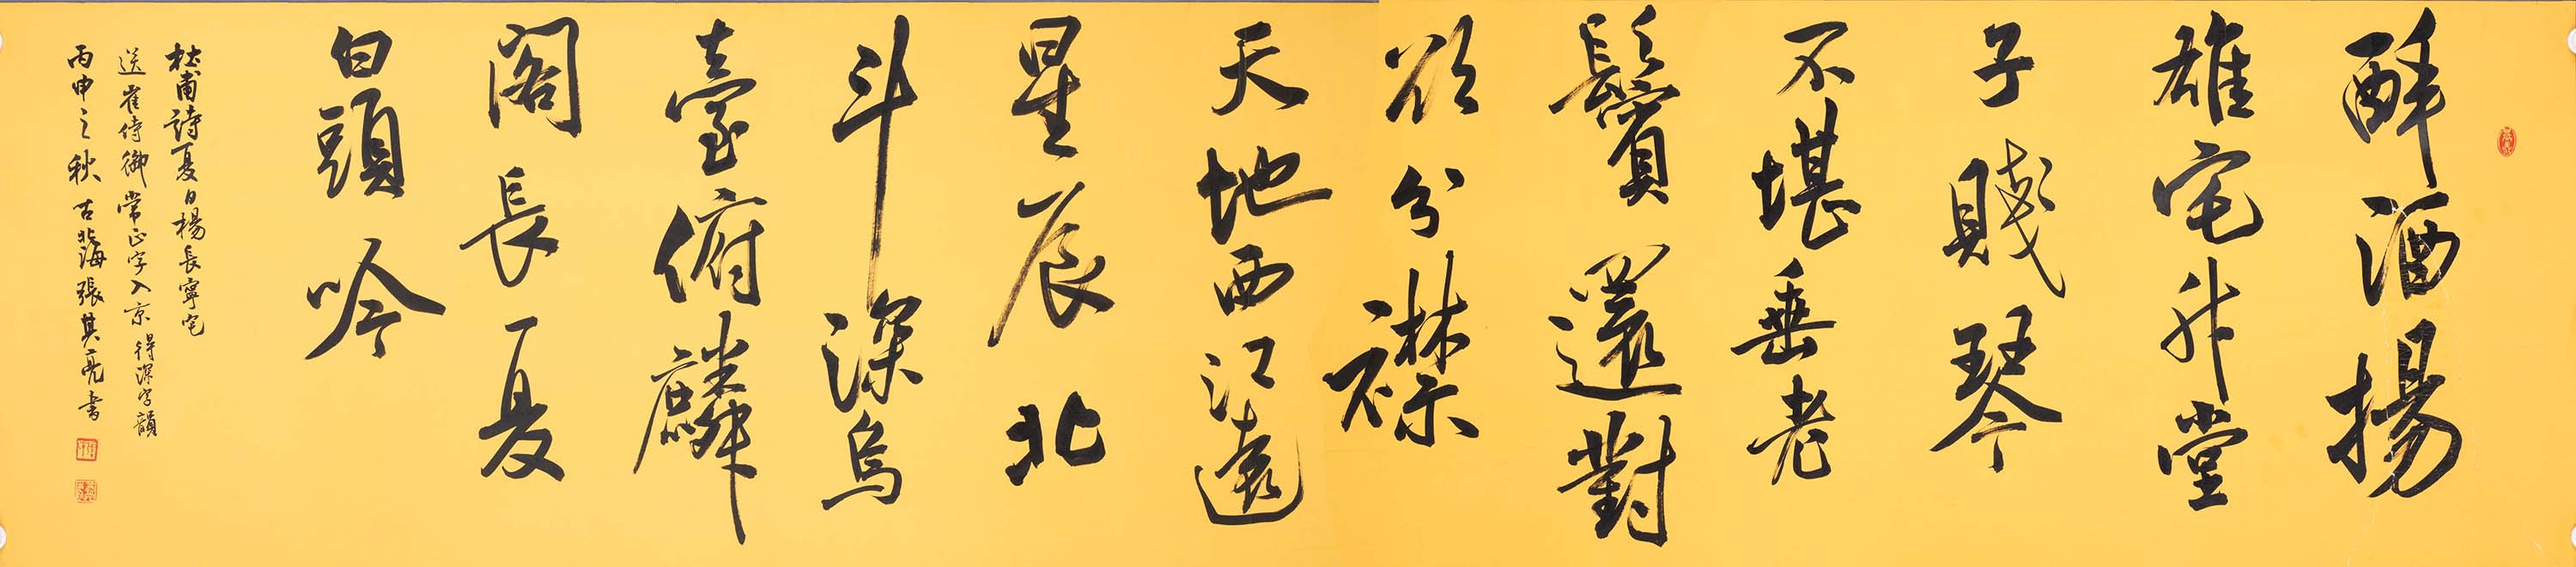 醉酒揚
雄宅升堂
子賤琴
不堪垂老
鬢還對
欲分襟
天地西江遠
星辰北
斗深烏
臺俯麟
閣長夏
白頭吟
杜甫詩夏日楊長寧宅
送崔侍御常正字入京得深字韻
丙申之秋古北海張其亮書